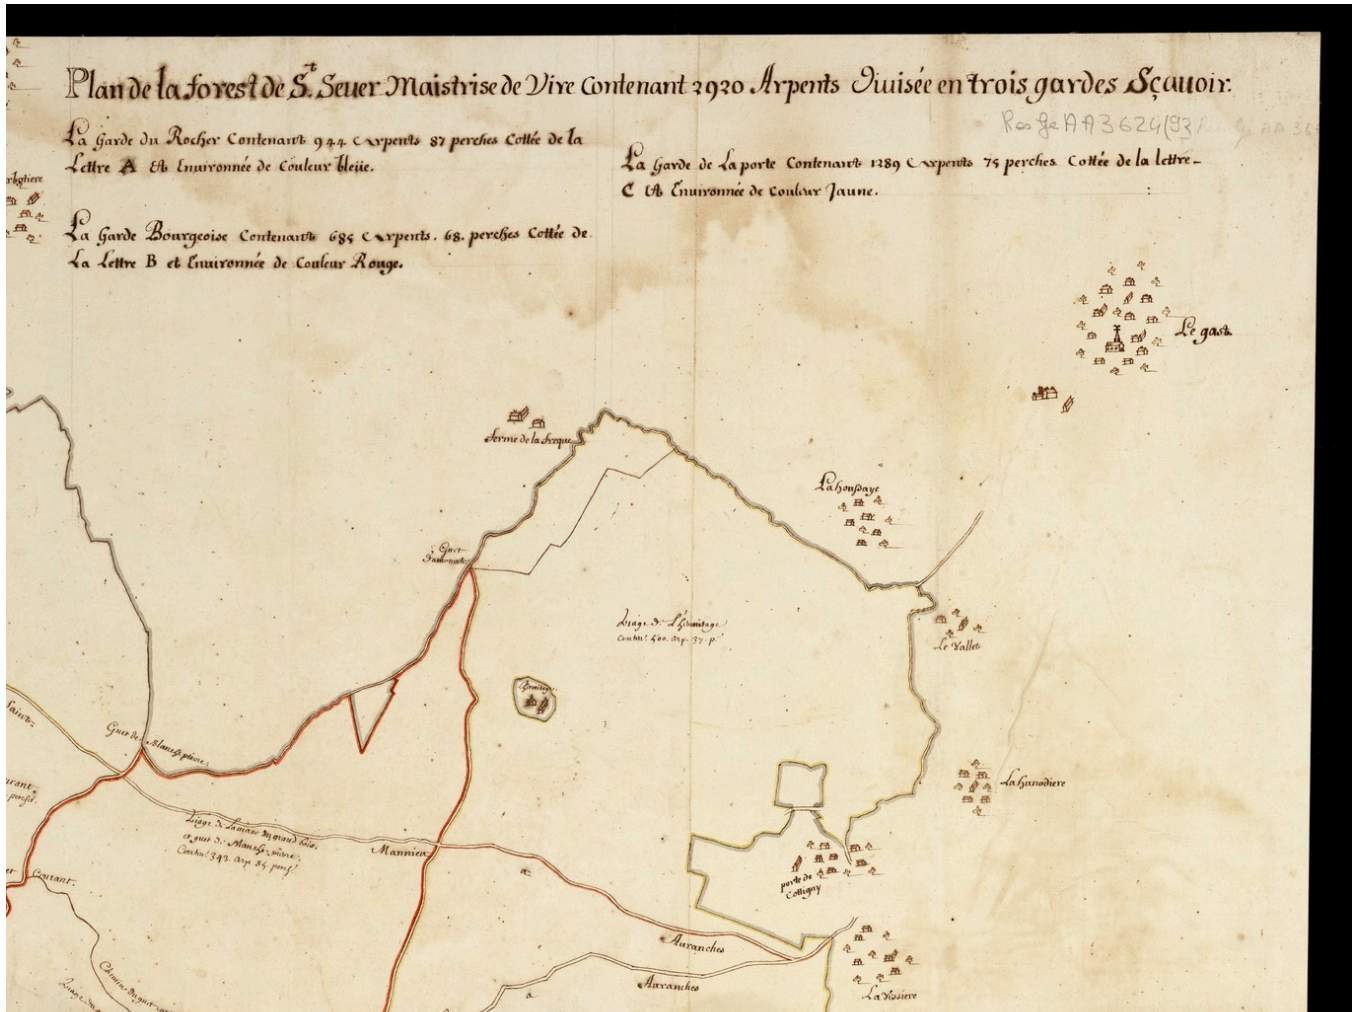 Plan de la forest de S.t Seuer Maistrise de Vire Contenant 2920 Arpents Diuisée en trois gardes Sçauoir.
Res Ge AA 3624 (93
La Garde du Rocher Contenant 944 Arpents 87 perches Cottée de la
Lettre A Et Enuironnée de Couleur bleüe.
La Garde de La porte Contenant 1289 Arpents 75 perches Cottée de la lettre
C Et Enuironnée de couleur Jaune.
La Garde Bourgeoise Contenant 685 Arpents. 68. perches Cottée de
La Lettre B et Enuironnée de Couleur Rouge.
Le gast.
ferme de la freque
La houssaye
Guet
Triage de L'hermitage
Cont.nt 500. arp. 37. p.
Le Vallet
hermitage
Guet de Blanche pierre
La hanodiere
Triage de Lamare du grand bois
et guet de Blanche pierre
Cont.nt 343. arp. 85 perch.
Mannieu
a
porte de
Cottigny
Courant.
Auranches
Auranches
a
La Vessiere